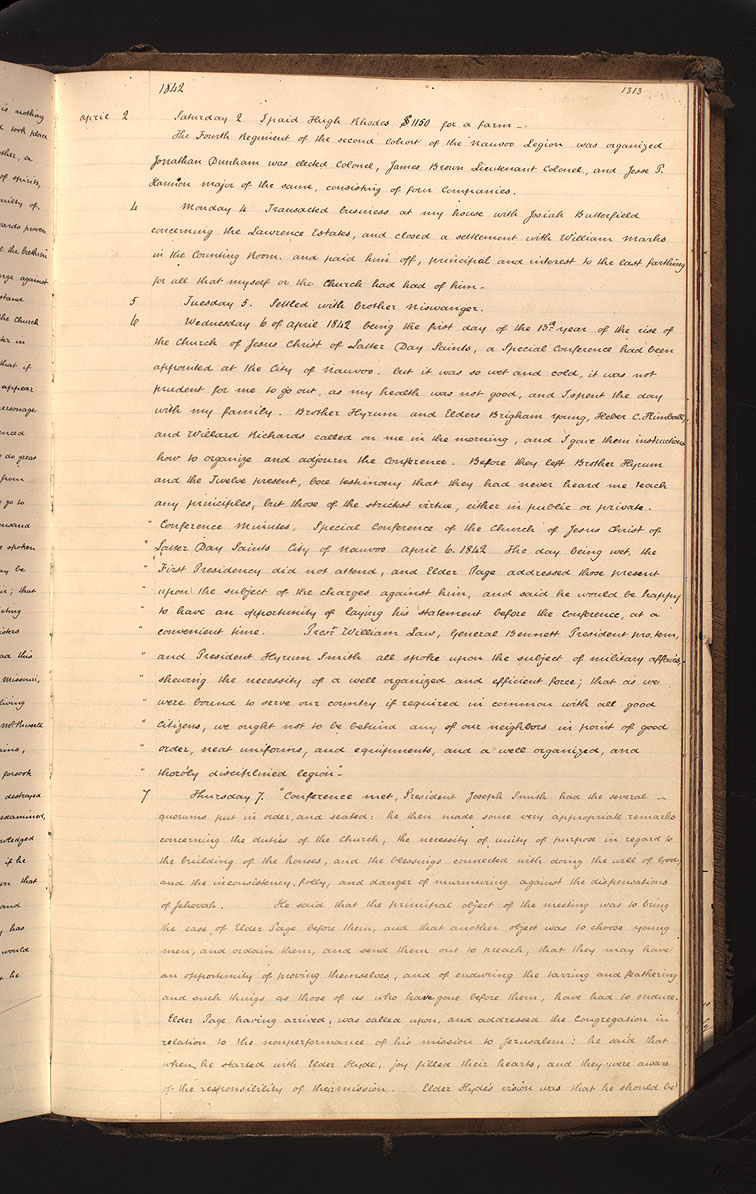 1842 1313
april 2 Saturday 2 I paid Hugh Rhodes $1150 for a farm -.
The Fourth Regiment of the second cohort of the Nauvoo Legion was organized
Jonathan Dunham was elected Colonel, James Brown Lieutenant Colonel, and Jesse P.
Harmon major of the same, consisting of four Companies.
4 Monday 4 Transacted business at my house with Josiah Butterfield
concerning the Lawrence Estates, and closed a settlement with William Marks
in the Counting Room. and paid him off, principal and interest to the last farthing
for all that myself or the Church had had of him -
5 Tuesday 5. Settled with brother Niswanger.
6 Wednesday 6 of april 1842 being the first day of the 13th year of the rise of
the Church of Jesus Christ of Latter Day Saints, a Special Conference had been
appointed at the City of Nauvoo. but it was so wet and cold, it was not
prudent for me to go out, as my health was not good, and I spent the day
with my family. Brother Hyrum and Elders Brigham Young, Heber C. Kimball,
and Willard Richards called on me in the morning, and I gave them instructions
how to organize and adjourn the Conference. Before they left Brother Hyrum
and the Twelve present, bore testimony that they had never heard me teach
any principles, but those of the strictest virtue, either in public or private.
" Conference Minutes, Special Conference of the Church of Jesus Christ of
" Latter Day Saints City of Nauvoo april 6. 1842 The day being wet, the
" First Presidency did not attend, and Elder Page addressed those present
" upon the subject of the charges against him, and said he would be happy
" to have an opportunity of laying his statement before the Conference, at a
" convenient time. Prest. William Law, General Bennett President pro. tem,
" and President Hyrum Smith all spoke upon the subject of military affairs,
" shewing the necessity of a well organized and efficient force; that as we
" were bound to serve our country if required in common with all good
" Citizens, we ought not to be behind any of our neighbors in point of good
" order, neat uniforms, and equipments, and a well organized, and
" thoro'ly disciplined legion"-
7 Thursday 7. "Conference met, President Joseph Smith had the several -
quorums put in order, and seated: he then made some very appropriate remarks
concerning the duties of the Church, the necessity of unity of purpose in regard to
the building of the houses, and the blessings connected with doing the will of God,
and the inconsistency, folly, and danger of murmuring against the dispensations
of Jehovah. He said that the principal object of the meeting was to bring
the case, of Elder Page before them, and that another object was to choose young
men, and ordain them, and send them out to preach, that they may have
an opportunity of proving themselves, and of enduring the tarring and feathering
and such things as those of us who have gone before them, have had to endure.
Elder Page having arrived, was called upon, and addressed the Congregation in
relation to the nonperformance of his mission to Jerusalem: he said that
when he started with Elder Hyde, joy filled their hearts, and they were aware
of the responsibility of their mission. Elder Hyde's vision was that he should be